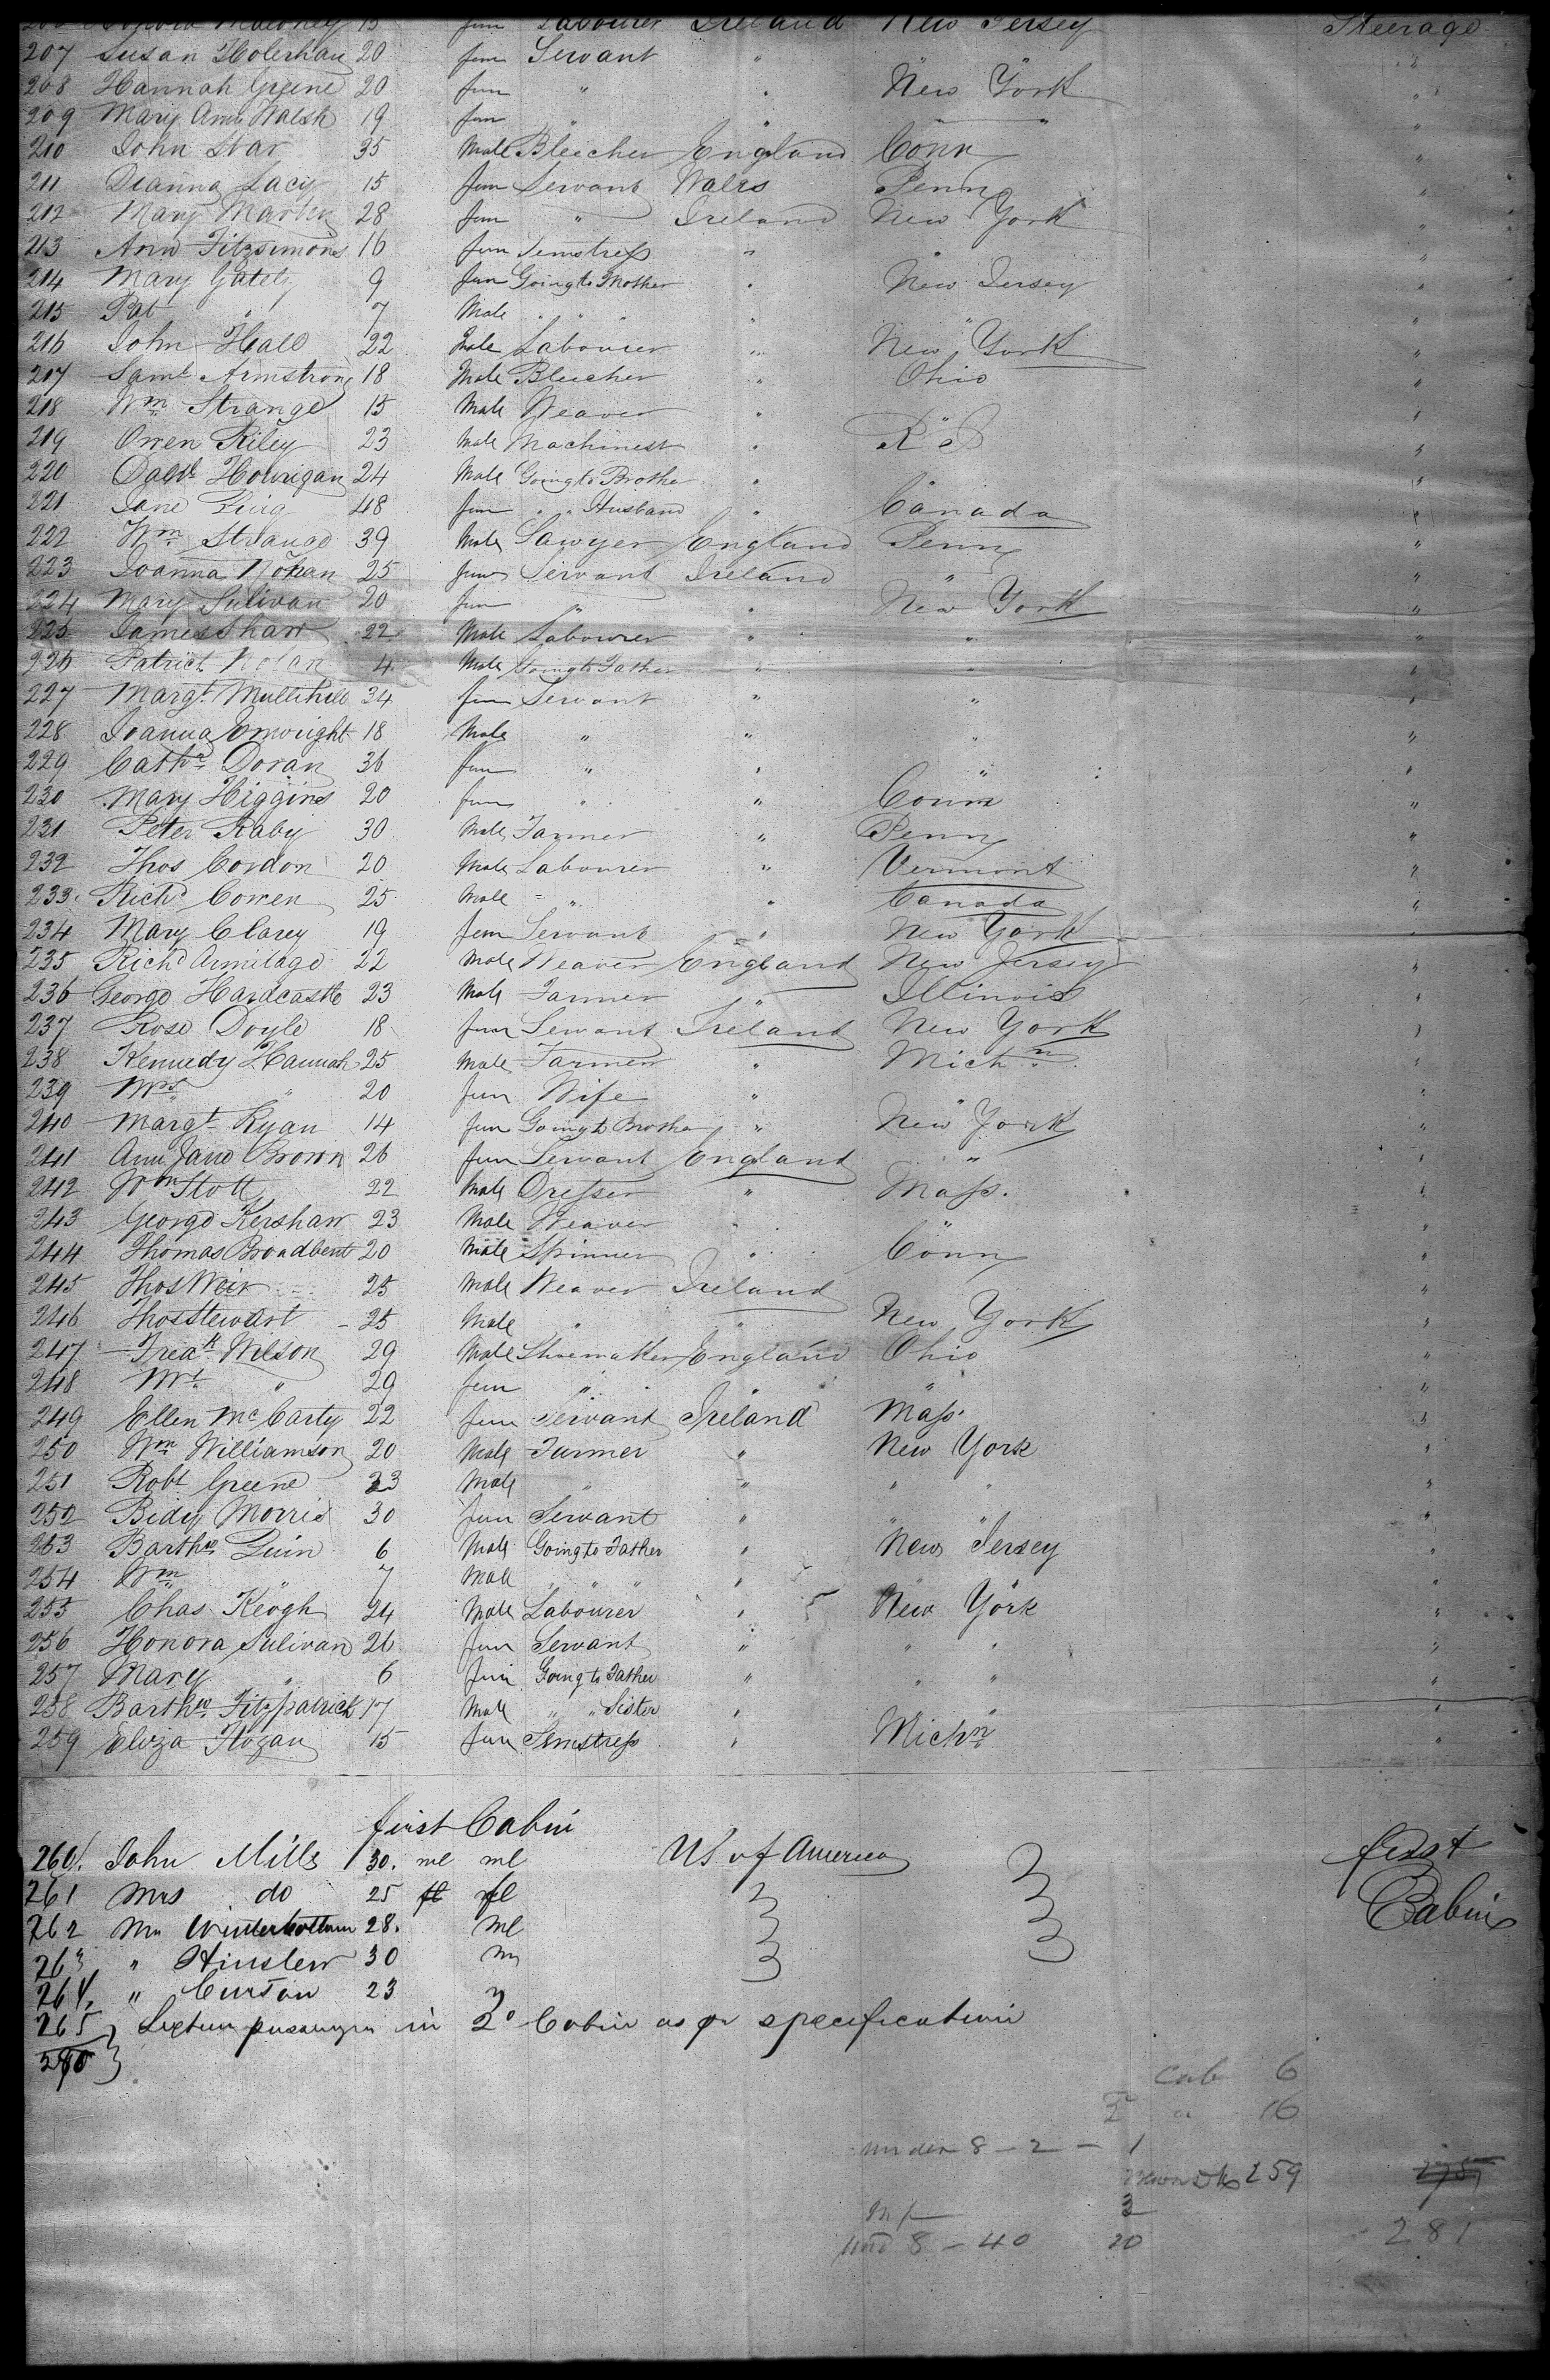 Maloney 15 fem Labourer Ireland New Jersey Steerage
207 Susan Holerhan 20 fem Servant "
208 Hannah Greene 20 fem " " New York "
209 Mary Ann Walsh 19 fem " " " "
210 John Star 35 Male Bleecher England Conn "
211 Dianna Lacy 15 fem Servant Wales Penn "
212 Mary Martin 28 fem " Ireland New York "
213 Ann Fitzsimons 16 fem Semstress " " "
214 Mary Gately 9 fem Going to Mother " New Jersey "
215 Pat " 7 Male " " " " " "
216 John Hall 22 Male Labourer " New York "
217 Saml Armstrong 18 Male Bleecher " Ohio "
218 Wm Strange 15 Male Weaver " " "
219 Owen Riley 23 Male Machinest " R I "
220 Hourigan 24 Male Going to Brother " " "
221 Jane King 48 fem " " Husband " Canada "
222 Wm Strange 39 Male Sawyer England Penn "
223 Joanna Nolan 25 fem Servant Ireland " "
224 Mary Sulivan 20 fem " " New York "
225 James Shaw 22 Male Labourer " " "
226 Patrick Nolan 4 Male Going to Father " " "
227 Margt Mullihill 34 fem Servant " " "
228 Joanna Enwright 18 Male " " " "
229 Cathe Doran 36 fem " " " "
230 Mary Higgins 20 fem " " Conn "
231 Peter Raby 30 Male Farmer " Penn "
232 Thos Cordon 20 Male Labourer " Vermont "
233 Richd Cowen 25 Male " " Canada "
234 Mary Clarey 19 fem Servant " New York "
235 Richd Armitage 22 Male Weaver England New Jersey "
236 George Hardcastle 23 Male Farmer " Illinois "
237 Rose Doyle 18 fem Servant Ireland New York "
238 Kennedy Hannah 25 Male Farmer " Michn "
239 Mrs " 20 fem Wife " " "
240 Margt Ryan 14 fem Going to Brother " New York "
241 Ann Jane Brown 26 fem Servant England " "
242 Wm Stott 22 Male Dresser " Mass. "
243 George Kershaw 23 Male Weaver " " "
244 Thomas Broadbent 20 Male Spinner " Conn "
245 Thos Weir 25 Male Weaver Ireland " "
246 Thos Stewart 25 Male " " New York "
247 Fredk Wilson 29 Male Shoemaker England Ohio "
248 Mrs " 29 fem " " " "
249 Ellen McCarty 22 fem Servant Ireland Mass. "
250 Wm Williamson 20 Male Farmer " New York "
251 Robt Greene 23 Male " " " " "
252 Bidy Morris 30 fem Servant " " " "
253 Barthw Quin 6 Male Going to Father " New Jersey "
254 Wm " 7 Male " " " " " "
255 Chas Keogh 24 Male Labourer " New York "
256 Honora Sulivan 26 fem Servant " " " "
257 Mary " 6 fem Going to Father " " " "
258 Barthw Fitzpatrick 17 Male " " Sister " " "
259 Eliza Hogan 15 fem Semstress " Michn "
first Cabin
260 John Mills 30. ml ml US of America first
261 Mrs do 25 fl fl Cabin
262 Mr Winterbottom 28. ml
263 " 30 m
264 " Curtan 23 "
265 } Sixteen passengers in 2o Cabin as pr specification
280 }
Cab 6
2 " 16
under 8 - 2 - 1
259
3
und 8 - 40 20 281